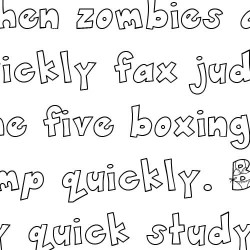 hen zombies
ickly fax jud
he five boxing
mp quickly.
quick study